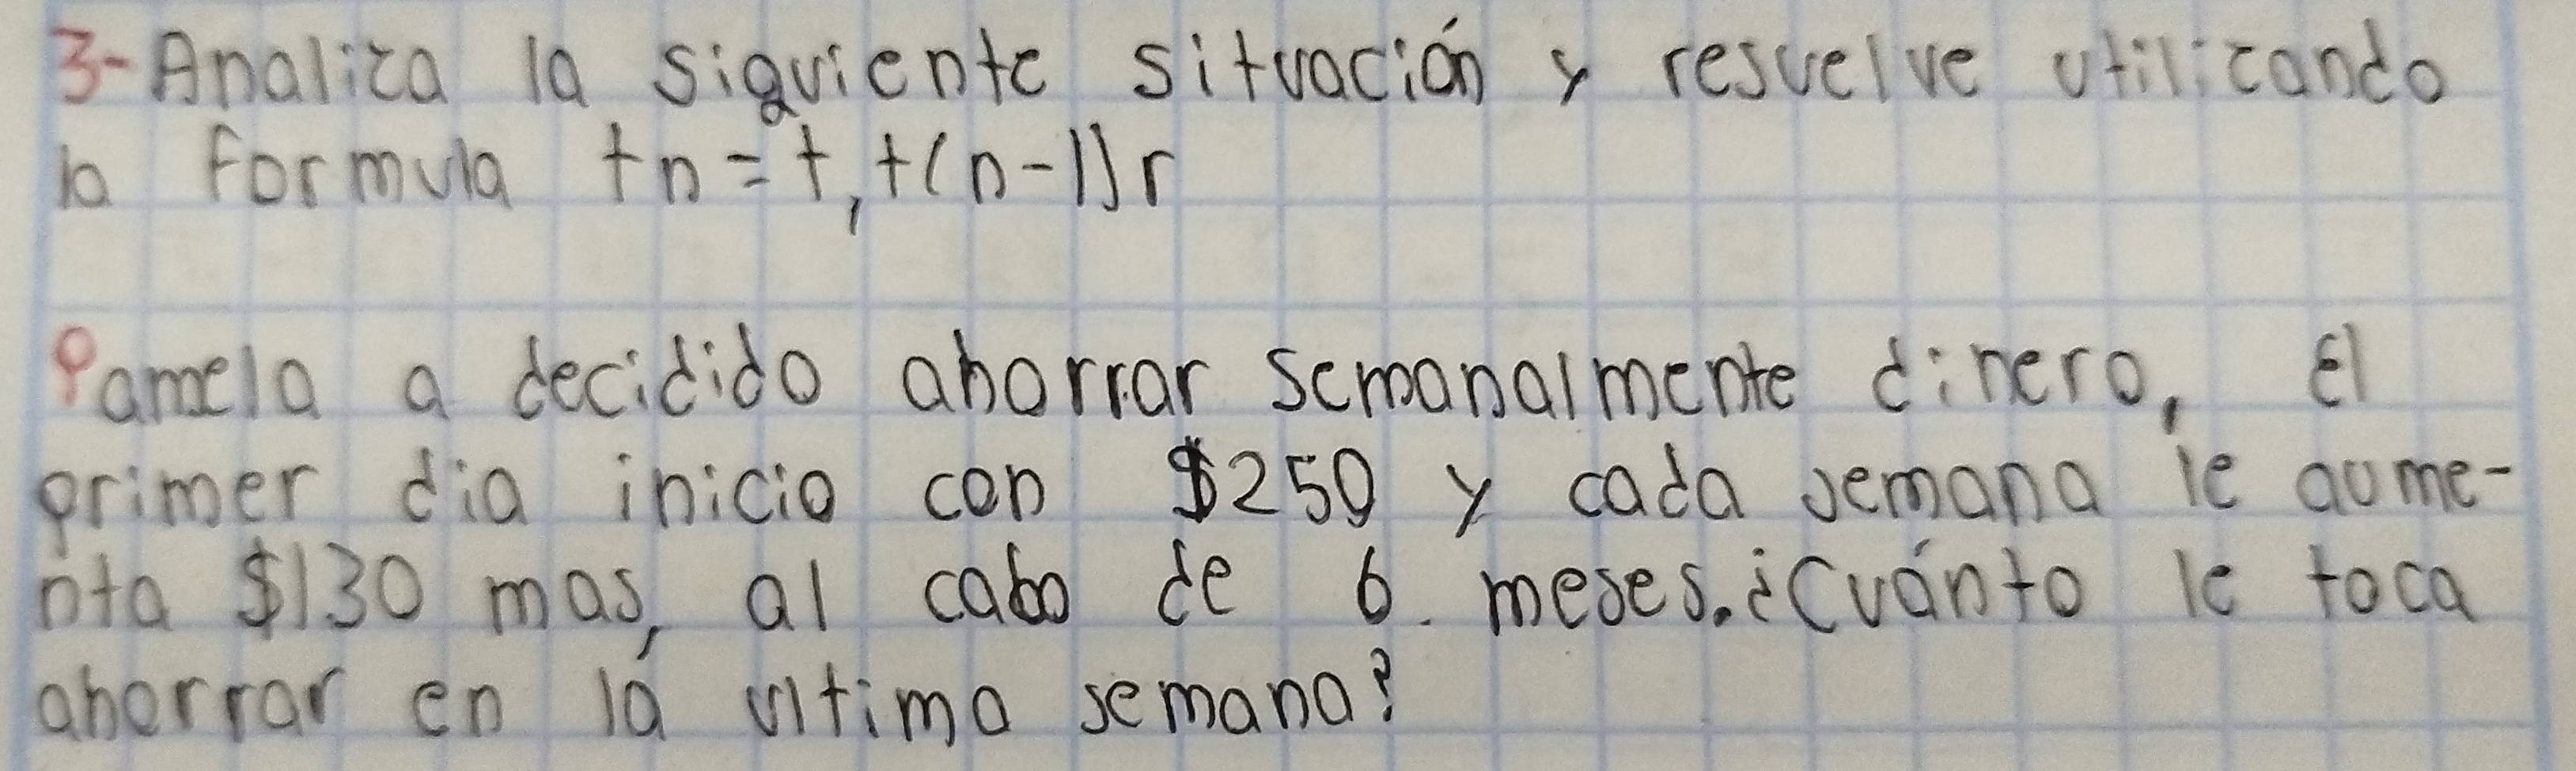 3- Analiza la siguiente situación y resuelve utilizando
la formula tn = t, +(n-1)r
Pamela a decidido ahorrar semanalmente dinero, El
primer dia inicio con $250 y cada semana le aume-
nta $130 mas, al cabo de 6. meses. ¿Cuánto le toca
ahorrar en la ultima semana?